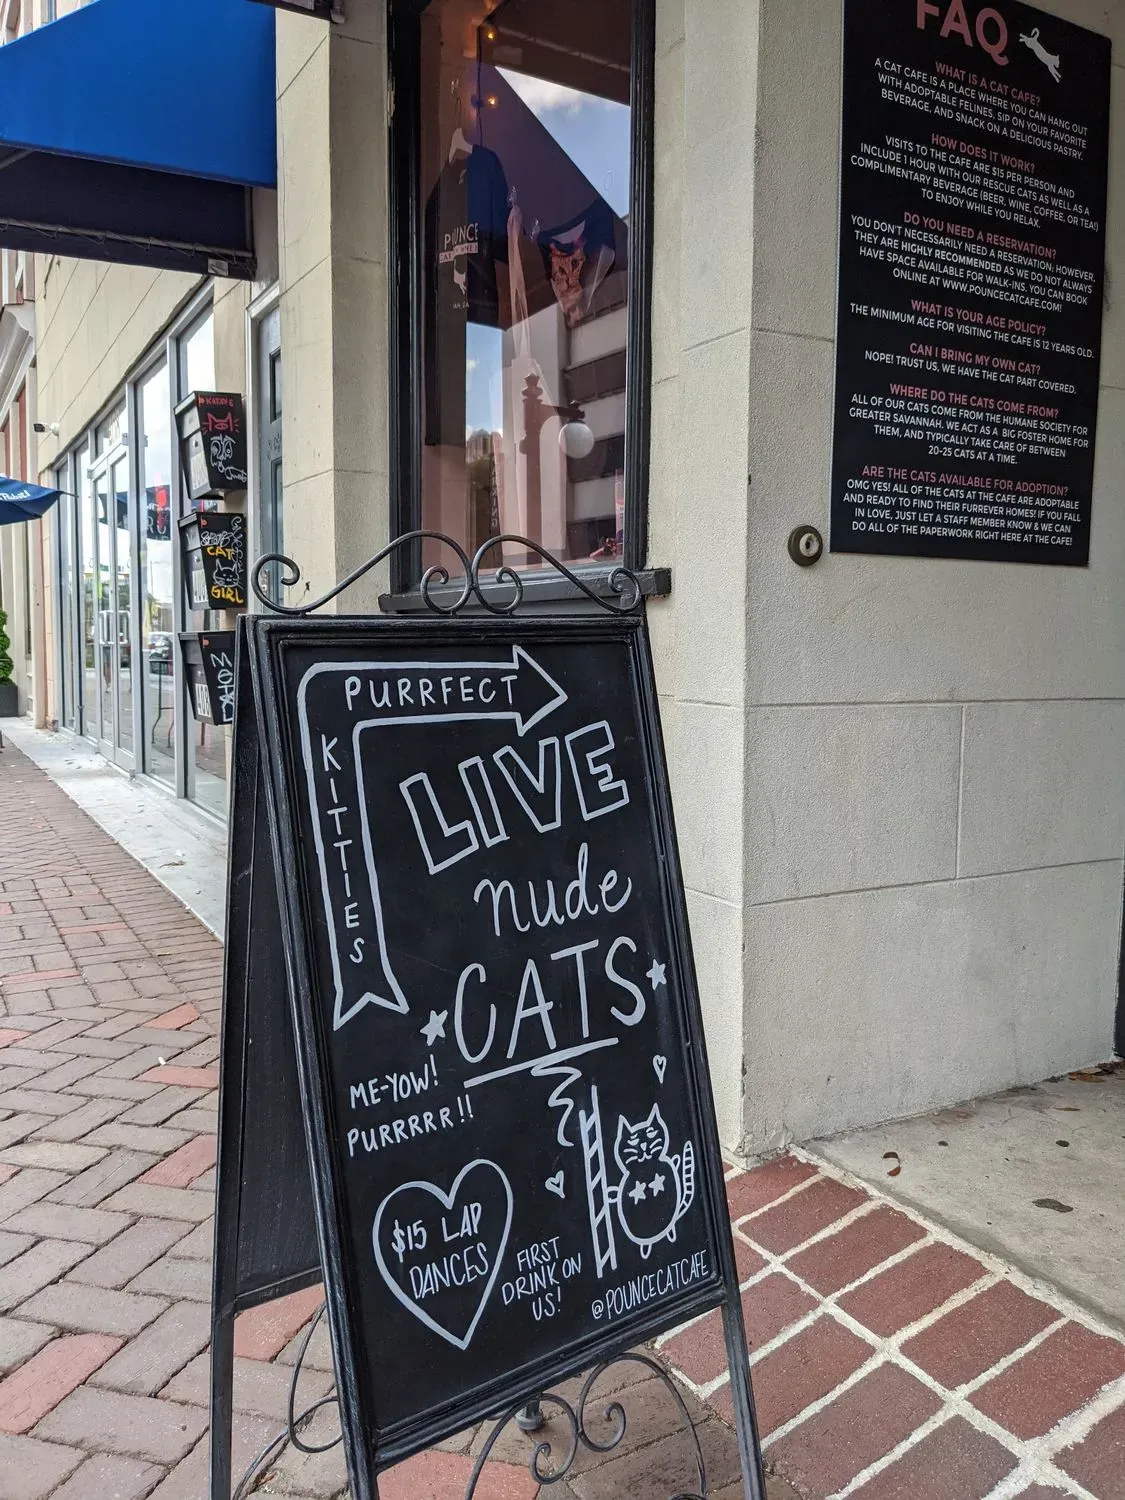 FAQ
WHAT IS A CAT CAFE?
A CAT CAFE IS A PLACE WHERE YOU CAN HANG OUT
WITH ADOPTABLE FELINES, SIP ON YOUR FAVORITE
BEVERAGE, AND SNACK ON A DELICIOUS PASTRY.
HOW DOES IT WORK?
VISITS TO THE CAFE ARE $15 PER PERSON AND
INCLUDE 1 HOUR WITH OUR RESCUE CATS AS WELL AS A
COMPLIMENTARY BEVERAGE (BEER, WINE, COFFEE, OR TEA!)
TO ENJOY WHILE YOU RELAX.
DO YOU NEED A RESERVATION?
YOU DON'T NECESSARILY NEED A RESERVATION; HOWEVER,
THEY ARE HIGHLY RECOMMENDED AS WE DO NOT ALWAYS
HAVE SPACE AVAILABLE FOR WALK-INS. YOU CAN BOOK
ONLINE AT WWW.POUNCECATCAFE.COM!
WHAT IS YOUR AGE POLICY?
THE MINIMUM AGE FOR VISITING THE CAFE IS 12 YEARS OLD.
CAN I BRING MY OWN CAT?
NOPE! TRUST US, WE HAVE THE CAT PART COVERED.
WHERE DO THE CATS COME FROM?
ALL OF OUR CATS COME FROM THE HUMANE SOCIETY FOR
GREATER SAVANNAH. WE ACT AS A BIG FOSTER HOME FOR
THEM, AND TYPICALLY TAKE CARE OF BETWEEN
20-25 CATS AT A TIME.
ARE THE CATS AVAILABLE FOR ADOPTION?
OMG YES! ALL OF THE CATS AT THE CAFE ARE ADOPTABLE
AND READY TO FIND THEIR FURREVER HOMES! IF YOU FALL
IN LOVE, JUST LET A STAFF MEMBER KNOW & WE CAN
DO ALL OF THE PAPERWORK RIGHT HERE AT THE CAFE!
POUNCE
CAT
GIRL
PURRFECT
KITTIES
LIVE
nude
CATS
ME-YOW!
PURRRRR!!
$15 LAP
DANCES
FIRST
DRINK ON
US!
@POUNCECATCAFE